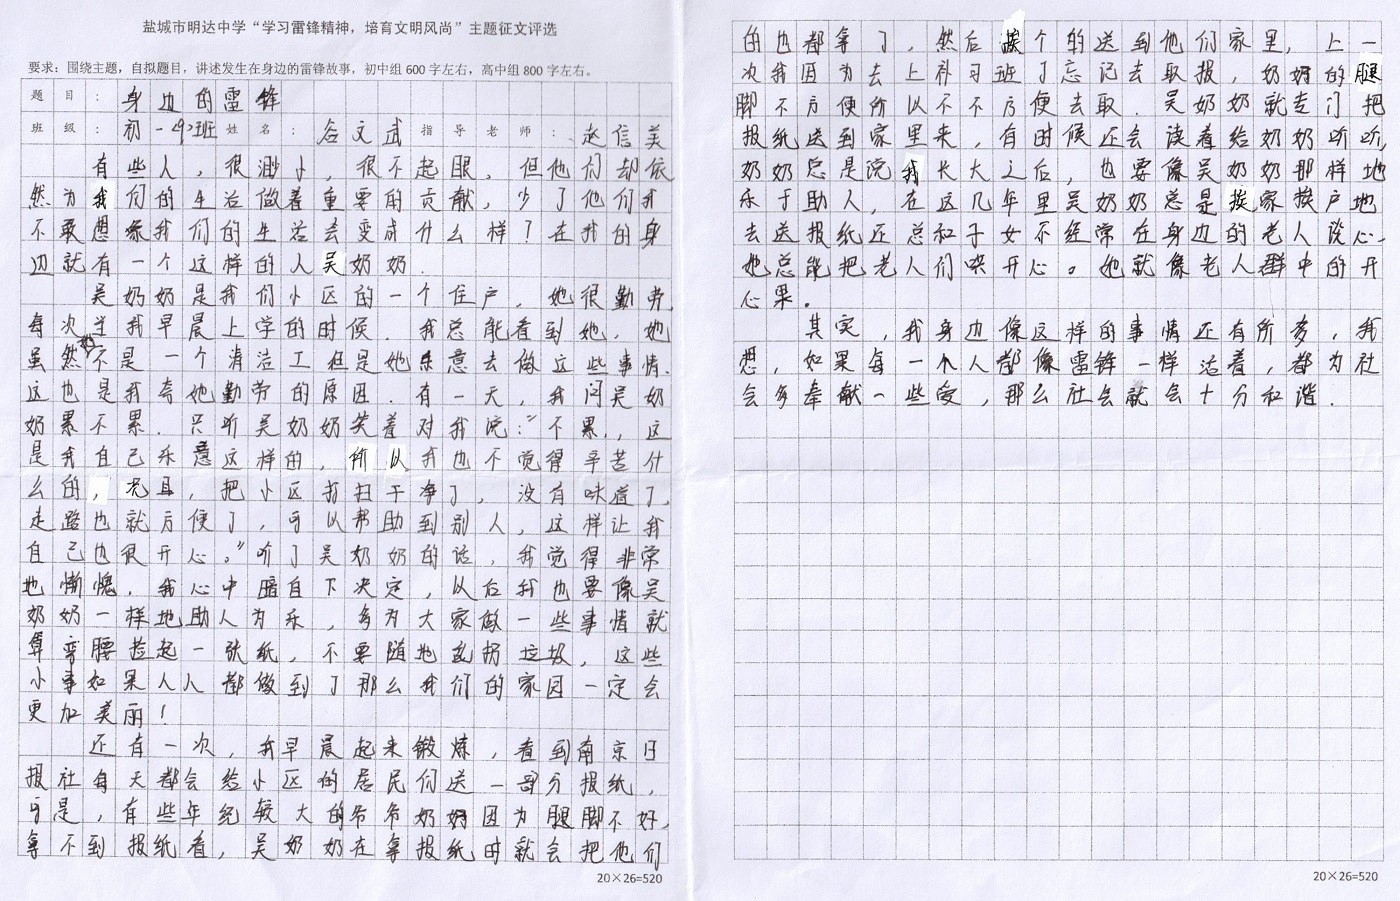 盐城市明达中学“学习雷锋精神，培育文明风尚”主题征文评选
要求：围绕主题，自拟题目，讲述发生在身边的雷锋故事，初中组600字左右，高中组800字左右。
题目：身边的雷锋
班级：初一〈9〉班姓名：谷文武指导老师：赵信美
有些人，很渺小，很不起眼，但他们却依
然为我们的生活做着重要的贡献，少了他们我
不敢想象我们的生活会变成什么样？在我的身
边就有一个这样的人吴奶奶．
吴奶奶是我们小区的一个住户，她很勤劳，
每次当我早晨上学的时候．我总能看到她．她
虽然不是一个清洁工但是她乐意去做这些事情．
这也是我夸她勤劳的原因．有一天，我问吴奶
奶累不累．只听吴奶奶笑着对我说：“不累，，这
是我自己乐意这样的，所以我也不觉得辛苦什
么的，况且，把小区打扫干净了，没有味道了，
走路也就方便了，可以帮助到别人，这样让我
自己也很开心。”听了吴奶奶的话，我觉得非常
地惭愧．我心中暗自下决定，以后我也要像吴
奶奶一样地助人为乐，多为大家做一些事情就
算弯腰捡起一张纸，不要随地乱拐垃圾，这些
小事如果人人都做到了那么我们的家园一定会
更加美丽！
还有一次，我早晨起来锻炼，看到南京日
报社每天都会给小区的居民们送一部分报纸，
可是，有些年纪较大的爷爷奶奶因为腿脚不好，
拿不到报纸看，吴奶奶在拿报纸时就会把他们
20×26=520
的也都拿了，然后挨个的送到他们家里，上一
次我因为去上补习班了忘记去取报，奶奶的腿
脚不方便所以不不方便去取．吴奶奶就专门把
报纸送到家里来，有时候还会读着给奶奶听听，
奶奶总是说我长大之后，也要像吴奶奶那样地
乐于助人，在这几年里吴奶奶总是挨家挨户地
去送报纸还总和子女不经常在身边的老人谈心．
她总能把老人们哄开心。她就像老人群中的开
心果．
其实，我身边像这样的事情还有所多，我
想，如果每一个人都像雷锋一样活着，都为社
会多奉献一些爱，那么社会就会十分和谐．
20×26=520